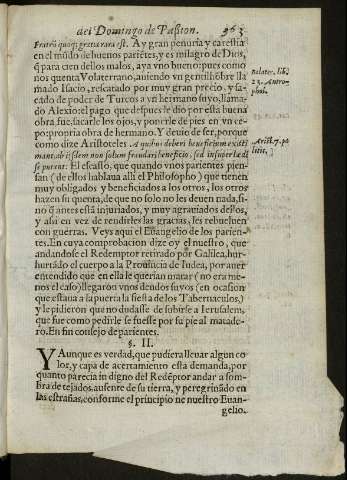 del Domingo de Passion. 963
Fratrũ quoq; gratia rara est. Ay gran penuria y carestia
en el mũdo de buenos pariẽtes, y es milagro de Dios,
q̃ para cien dellos malos, aya vno bueno: pues como
nos quenta Volaterrano, auiendo vn gentilhõbre lla
mado Isacio, rescatado por muy gran precio, y sa-
cado de poder de Turcos a vn hermano suyo, llama-
do Alexio: el pago que despues le dio por esta buena
obra fue, sacarle los ojos, y ponerle de pies en vn ce-
po: propria obra de hermano. Y deuio de ser, porque
como dize Aristoteles A quibus deberi beneficium existi
mant, ab ijsdem non solum fraudari beneficio, sed
se putant: El escãsso, que quando vnos parientes pien-
san (de ellos hablaua alli el Philosopho) que tienen
muy obligados y beneficiados a los otros, los otros
hazen su quenta, de que no solo no les deuen nada, si-
no q̃ antes està injuriados, y muy agrauiados dellos,
y assi en vez de rendirles las gracias, les rebueluen
con guerras. Veys aqui el Euangelio de los parien-
tes. En cuya comprobacion dize oy el nuestro, que
andandose el Redemptor retirado por Galilea, hur-
hurtãdo el cuerpo a la Prouincia de Iudea, por auer
entendido que en ella le querian matar (no era me-
nos el caso) llegaron vnos deudos suyos (en ocasion
que estaua a la puerta la fiesta de los Tabernaculos)
y le pidieron que no dudasse de subirse a Ierusalem,
que fue como pedirle se fuesse por su pie al matade-
ro. En fin consejo de parientes.
§. II.
Y Aunque es verdad, que pudiera lleuar algun co
lor, y capa de acertamiento esta demanda, por
quanto parecia indigno del Redẽptor andar a som-
bra de tejados, ausente de su tierra, y peregrinãdo en
las estrañas, conforme el principio de nuestro Euan-
gelio.
Volater. lib.
23. Antro-
phol.
Arist. 7. po
litic.